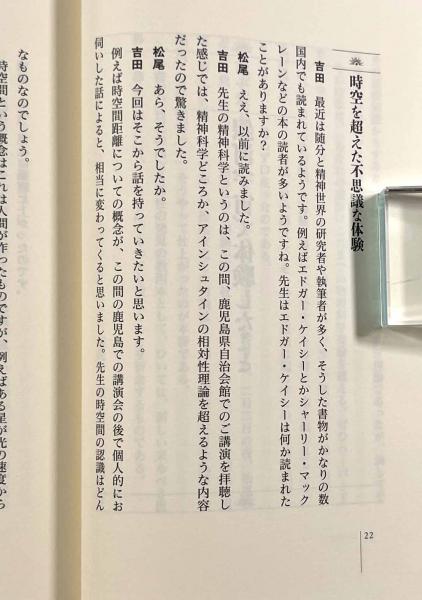 時空を超えた不思議な体験
吉田　最近は随分と精神世界の研究者や執筆者が多く、そうした書物がかなりの数
国内でも読まれているようです。例えばエドガー・ケイシーとかシャーリー・マック
レーンなどの本の読者が多いようですね。先生はエドガー・ケイシーは何か読まれた
ことがありますか？
松尾　ええ、以前に読みました。
吉田　先生の精神科学というのは、この間、鹿児島県自治会館でのご講演を拝聴し
た感じでは、精神科学どころか、アインシュタインの相対性理論を超えるような内容
だったので驚きました。
松尾　あら、そうでしたか。
吉田　今回はそこから話を持っていきたいと思います。
例えば時空間距離についての概念が、この間の鹿児島での講演会の後で個人的にお
伺いした話によると、相当に変わってくると思いました。先生の時空間の認識はどん
22
なものなのでしょう。
時空間という概念はこれは人間が作ったものですが、例えばある星が光の速度から